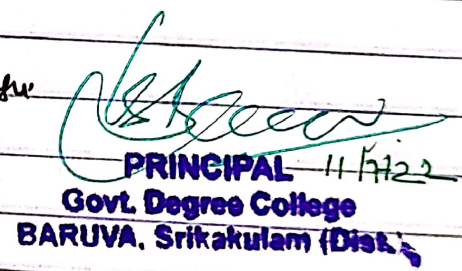 PRINCIPAL 11/7/22
Govt. Degree College
BARUVA. Srikakulam (Dist.)